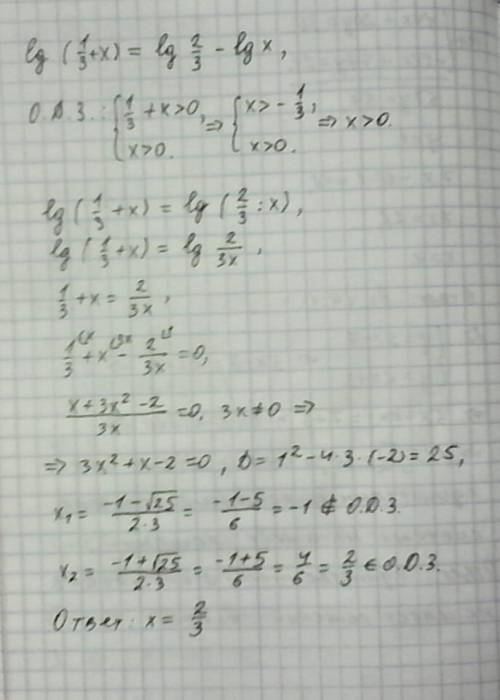 lg (1/3 + x) = lg 2/3 - lg x,
О.Д.З.: { 1/3 + x > 0, x > 0. ⇒ { x > -1/3, x > 0. ⇒ x > 0.
lg (1/3 + x) = lg (2/3 : x),
lg (1/3 + x) = lg 2/3x,
1/3 + x = 2/3x,
1/3 + x - 2/3x = 0,
x + 3x² - 2 / 3x = 0, 3x ≠ 0 ⇒
⇒ 3x² + x - 2 = 0, D = 1² - 4·3·(-2) = 25,
x₁ = -1-√25 / 2·3 = -1-5 / 6 = -1 ∉ О.Д.З.
x₂ = -1+√25 / 2·3 = -1+5 / 6 = 4/6 = 2/3 ∈ О.Д.З.
Ответ: x = 2/3